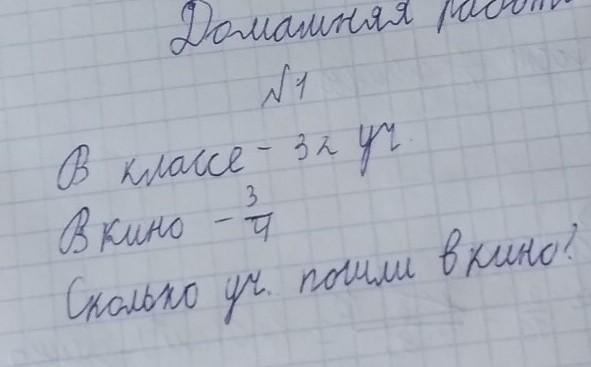 Домашняя работа
№1
В классе - 32 уч.
В кино - 3/4
Сколько уч. пошли в кино?